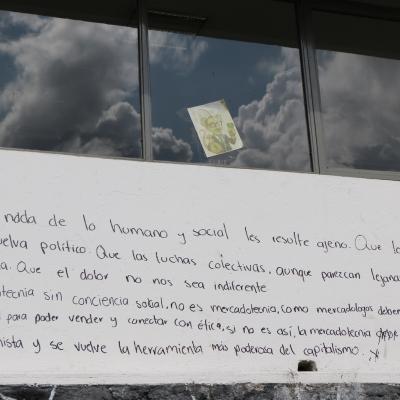 nada de lo humano y social les resulte ajeno. Que lo
uelva político. Que las luchas colectivas, aunque parezcan lejana
a. Que el dolor no nos sea indiferente
otecnia sin conciencia social, no es mercadotecnia, como mercadologos deber
para poder vender y conectar con ética, si no es así, la mercadotecnia
nista y se vuelve la herramienta más poderosa del capitalismo.